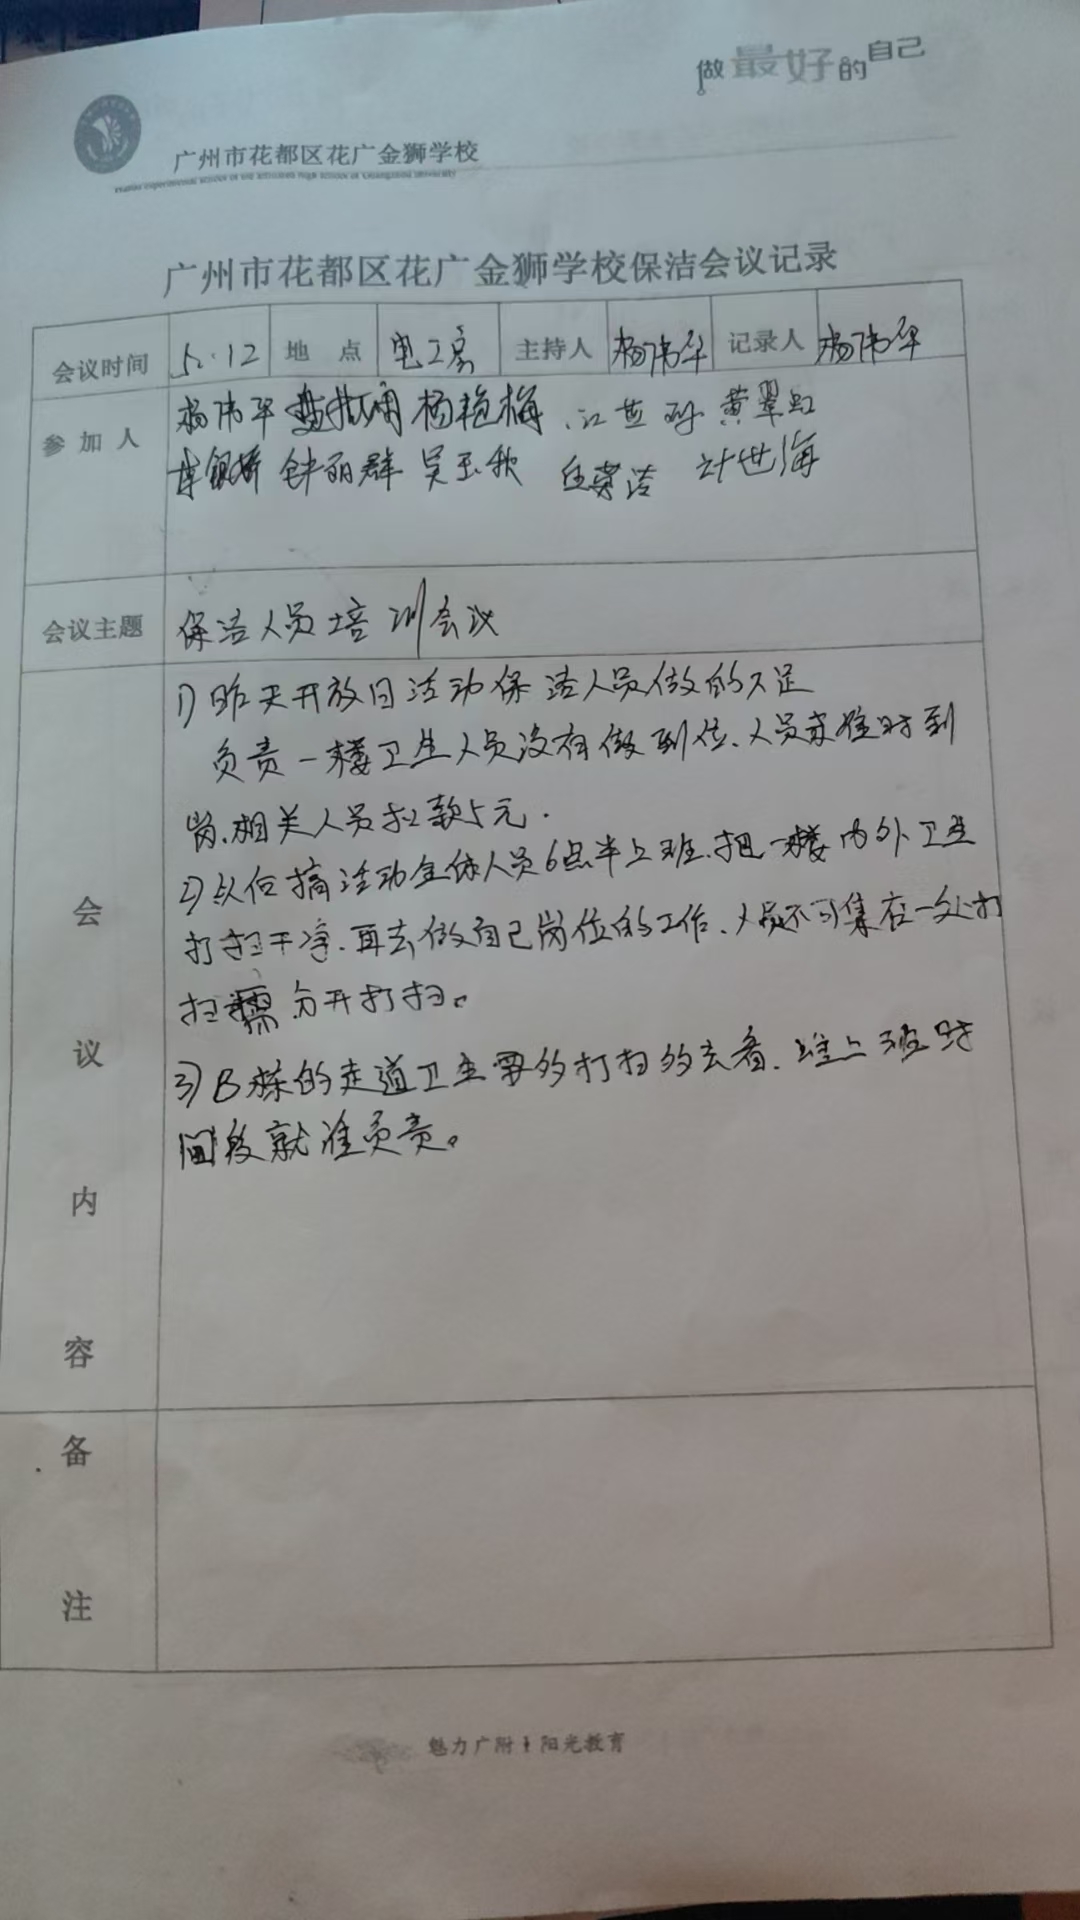 做最好的自己
广州市花都区花广金狮学校
广州市花都区花广金狮学校保洁会议记录
会议时间 5.12 地点 电工房 主持人 杨伟华 记录人 杨伟华
参加人 杨伟华 杨艳梅 黄翠虹
钟丽群 吴玉秋 计世海
会议主题 保洁人员培训会议
会议内容
1)昨天开放日活动保洁人员做的不足
负责一楼卫生人员没有做到位、人员未准时到
岗、相关人员扣款5元.
2)以后搞活动全体人员6点半上班、把一楼内外卫生
打扫干净、再去做自己岗位的工作、人员不可集在一处打
扫需分开打扫。
3)B栋的走道卫生要多打扫多去看、谁上班时
间段就谁负责。
备注
魅力广附 阳光教育